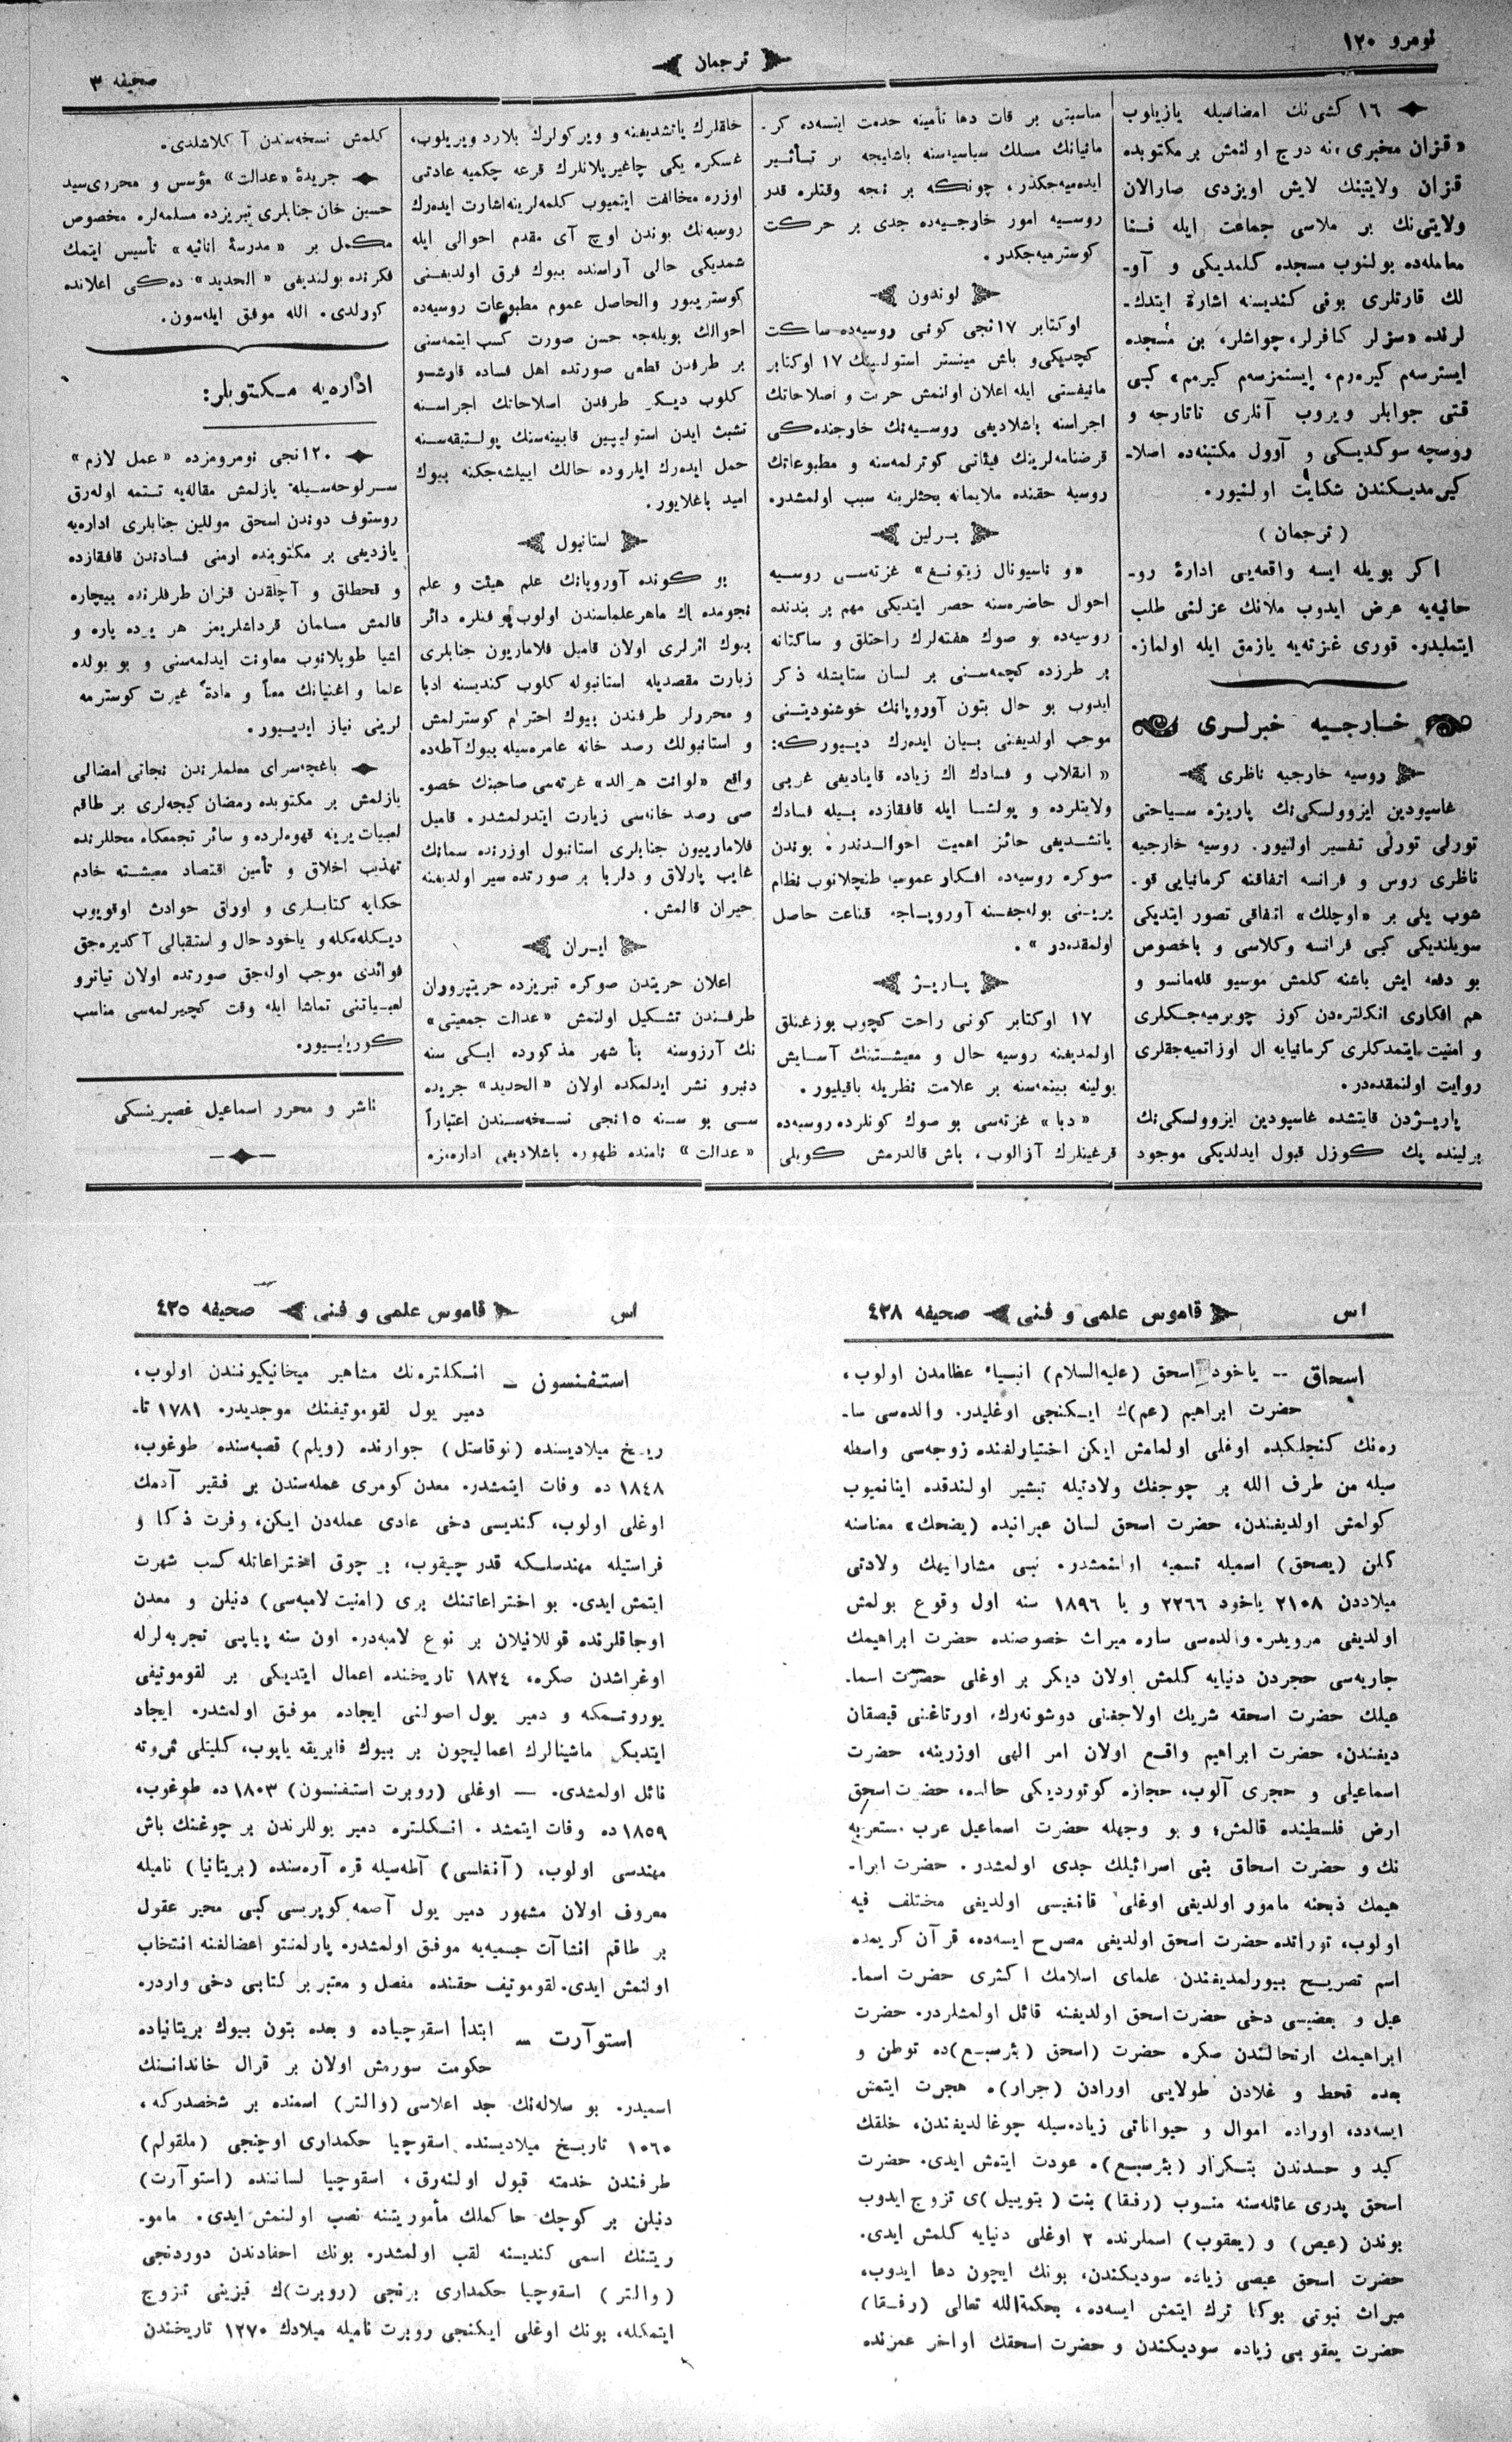 نومرو ١٢٠
ترجمان
صحیفه ٣
١٦ کشی‌نك امضاسیله یازیلوب
«قزان مخبری»نه درج اولنمش بر مکتوبده
قزان ولایتینك لایش اویزدی صارالان
ولایتی‌نك بر ملاسی جماعت ایله فنا
معامله‌ده بولنوب مسجده کلمدیکی و آو-
لك قارتلری بونی کندیسنه اشارة ایتدك-
لرنده «سزلر کافرلر، چواشلر، بن مسجده
ایسترسم کیره‌رم، ایستمزسم کیرمم» کبی
قتی جوابلر ویروب آنلری تاتارجه و
روسچه سوکدیکی و آوول مکتبنده اصلا-
کیرمدیکندن شکایت اولنیور.
(ترجمان)
اکر بویله ایسه واقعه‌یی ادارهٔ رو-
حانیه‌یه عرض ایدوب ملانك عزلنی طلب
ایتملیدر. قوری غزته‌یه یازمق ایله اولماز.
خارجیه خبرلری
روسیه خارجیه ناظری
غاسپودین ایزوولسکی‌نك پاریژه سیاحتی
تورلی تورلی تفسیر اولنیور. روسیه خارجیه
ناظری روس و فرانسه اتفاقنه کرمانیایی قو-
شوب یکی بر «اوچلك» اتفاقی تصور ایتدیکی
سویلندیکی کبی فرانسه وکلاسی و باخصوص
بو دفعه ایش باشنه کلمش موسیو قله‌مانسو و
هم افکاری انکلتره‌دن کوز چویرمیه‌جکلری
و امنیت ایتمدکلری کرمانیایه ال اوزاتمیه‌جقلری
روایت اولنمقده‌در.
پاریژدن قایتشده غاسپودین ایزوولسکی‌نك
برلینده پك کوزل قبول ایدلدیکی موجود
مناسبتی بر قات دها تأمینه خدمت ایتسه‌ده کر-
مانیانك مسلك سیاسیه‌سنه باشلیجه بر تأثیر
ایده‌میه‌جکدر، چونکه بر نجه وقتلره قدر
روسیه امور خارجیه‌ده جدی بر حرکت
کوسترمیه‌جکدر.
لوندون
اوکتابر ١٧نجی کونی روسیه‌ده ساکت
کچدیکی و باش مینستر استولیپینك ١٧ اوکتابر
مانیفستی ایله اعلان اولنمش حریت و اصلاحاتك
اجراسنه باشلادیغی روسیه‌نك خارجنده‌کی
قرضنامه‌لرینك فیئاتی کوترلمه‌سنه و مطبوعاتك
روسیه حقنده ملایمانه بحثلرینه سبب اولمشدر.
برلین
«و ناسیونال زیتونغ» غزته‌سی روسیه
احوال حاضره‌سنه حصر ایتدیکی مهم بر بندنده
روسیه‌ده بو صوك هفته‌لرك راحتلق و ساکتانه
بر طرزده کچمه‌سنی بر لسان ستایشله ذکر
ایدوب بو حال بتون آوروپانك خوشنودیتنی
موجب اولدیغنی بیان ایده‌رك دیورکه:
«انقلاب و فسادك اك زیاده قاینادیغی غربی
ولایتلرده و پولشا ایله قافقازده بیله فسادك
یانشدیغی حائز اهمیت احوالدندر. بوندن
صوکره روسیه‌ده افکار عمومیه طنچلانوب نظام
یرینی بوله‌جغنه آوروپاجه قناعت حاصل
اولمقده‌در».
پاریژ
١٧ اوکتابر کونی راحت کچوب بوزغنلق
اولمدیغنه روسیه حال و معیشتنك آسایش
یولینه بینمه‌سنه بر علامت نظریله باقیلیور.
«دبا» غزته‌سی بو صوك کونلرده روسیه‌ده
قرغینلرك آزالوب، باش قالدرمش کویلی
خلقلرك یاتشدیغنه و ویرکولرك بلارد ویریلوب،
عسکره یکی چاغیریلانلرك قرعه چکمیه عادتی
اوزره مخالفت ایتمیوب کلمه‌لرینه اشارت ایده‌رك
روسیه‌نك بوندن اوچ آی مقدم احوالی ایله
شمدیکی حالی آراسنده بیوك فرق اولدیغنی
کوستریبور والحاصل عموم مطبوعات روسیه‌ده
احوالك بویله‌جه حسن صورت کسب ایتمه‌سنی
بر طرفدن قطعی صورتده اهل فساده قارشو
کلوب دیکر طرفدن اصلاحاتك اجراسنه
تشبث ایدن استولیپین قابینه‌سنك پولتیقه‌سنه
حمل ایده‌رك ایلروده حالك اییلشه‌جکنه بیوك
امید باغلایور.
استانبول
بو کونده آوروپانك علم هیئت و علم
نجومده اك ماهر علماسندن اولوب بو فنلره دائر
بیوك اثرلری اولان قامیل فلاماریون جنابلری
زیارت مقصدیله استانبوله کلوب کندیسنه ادبا
و محررلر طرفندن بیوك احترام کوسترلمش
و استانبولك رصد خانه عامره‌سیله بیوك آطه‌ده
واقع «لوانت هرالد» غزته‌سی صاحبنك خصو-
صی رصد خانه‌سی زیارت ایتدرلمشدر. قامیل
فلامارییون جنابلری استانبول اوزرنده سمانك
غایب پارلاق و دلربا بر صورتده سیر اولدیغنه
حیران قالمش.
ایران
اعلان حریتدن صوکره تبریزده حریتپروران
طرفندن تشکیل اولنمش «عدالت جمعیتی»
نك آرزوسنه بنأ شهر مذکورده ایکی سنه
دنبرو نشر ایدلمکده اولان «الحدید» جریده
سی بو سنه ١٥نجی نسخه‌سندن اعتباراً
«عدالت» نامنده ظهوره باشلادیغی اداره‌مزه
کلمش نسخه‌سندن آکلاشلدی.
جریدهٔ «عدالت» مؤسس و محرری سید
حسین خان جنابلری تبریزده مسلمه‌لره مخصوص
مکمل بر «مدرسهٔ اناثیه» تأسیس ایتمك
فکرنده بولندیغی «الحدید» ده‌کی اعلانده
کورلدی. الله موفق ایله‌سون.
اداره‌یه مکتوبلر:
١٢٠نجی نومرومزده «عمل لازم»
سرلوحه‌سیله یازلمش مقاله‌یه تتمه اوله‌رق
روستوف دوندن اسحق موللین جنابلری اداره‌یه
یازدیغی بر مکتوبنده ارمنی فسادندن قافقازده
و قحطلق و آچلقدن قزان طرفلرنده بیچاره
قالمش مسلمان قرداشلریمز هر یرده پاره و
اشیا طوپلانوب معاونت ایدلمه‌سنی و بو یولده
علما و اغنیانك معناً و مادةً غیرت کوسترمه
لرینی نیاز ایدییور.
باغچه‌سرای معلملرندن نجاتی امضالی
یازلمش بر مکتوبده رمضان کیجه‌لری بر طاقم
لعبیات یرینه قهوه‌لرده و سائر تجمعکاه محللرنده
تهذیب اخلاق و تأمین اقتصاد معیشته خادم
حکایه کتابلری و اوراق حوادث اوقویوب
دیکله‌مکله و یاخود حال و استقبالی آکدیره‌جق
فوائدی موجب اوله‌جق صورتده اولان تیاترو
لعبیاتنی تماشا ایله وقت کچیرلمه‌سی مناسب
کوریلییور.
ناشر و محرر اسماعیل غصپرینسکی
اس
قاموس علمی و فنی
صحیفه ٤٣٨
اسحاق -- یاخود اسحق (علیه‌السلام) انبیاء عظامدن اولوب،
حضرت ابراهیم (عم)ك ایکنجی اوغلیدر. والده‌سی سا-
ره‌نك کنجلکیده اوغلی اولمامش ایکن اختیارلغنده زوجه‌سی واسطه
سیله من طرف الله بر چوجغك ولادتیله تبشیر اولندقده اینانمیوب
کولمش اولدیغندن، حضرت اسحق لسان عبرانیده (یضحك) معناسنه
کلن (یصحق) اسمیله تسمیه اولنمشدر. نبی مشارالیهك ولادتی
میلاددن ٢١٠٨ یاخود ٢٢٦٦ و یا ١٨٩٦ سنه اول وقوع بولمش
اولدیغی مرویدر. والده‌سی ساره میراث خصوصنده حضرت ابراهیمك
جاریه‌سی حجردن دنیایه کلمش اولان دیکر بر اوغلی حضرت اسما-
عیلك حضرت اسحقه شریك اولاجغنی دوشونه‌رك، اورتاغنی قیصقان
دیغندن، حضرت ابراهیم واقع اولان امر الهی اوزرینه، حضرت
اسماعیلی و حجری آلوب، حجازه کوتوردیکی حالده، حضرت اسحق
ارض فلسطینده قالمش؛ و بو وجهله حضرت اسماعیل عرب مستعربه
نك و حضرت اسحاق بنی اسرائیلك جدی اولمشدر. حضرت ابرا-
هیمك ذبحنه مامور اولدیغی اوغلی قانغیسی اولدیغی مختلف فیه
اولوب، توراتده حضرت اسحق اولدیغی مصرح ایسه‌ده، قرآن کریمده
اسم تصریح بیورلمدیغندن علمای اسلامك اکثری حضرت اسما-
عیل و بعضیسی دخی حضرت اسحق اولدیغنه قائل اولمشلردر. حضرت
ابراهیمك ارتحالندن صکره حضرت (اسحق (بئرسبع)ده توطن و
بعده قحط و غلادن طولایی اورادن (جرار)ه هجرت ایتمش
ایسه‌ده، اوراده اموال و حیواناتی زیاده‌سیله چوغالدیغندن، خلقك
کید و حسدندن بتکرار (بئرسبع)ه عودت ایتمش ایدی. حضرت
اسحق پدری عائله‌سنه منسوب (رفقا) بنت (بتوییل)ی تزوج ایدوب
بوندن (عیص) و (یعقوب) اسملرنده ٢ اوغلی دنیایه کلمش ایدی.
حضرت اسحق عیصی زیاده سودیکندن، بونك ایچون دعا ایدوب،
میراث نبوتی بوکا ترك ایتمش ایسه‌ده، بحکمةالله تعالی (رفقا)
حضرت یعقوبی زیاده سودیکندن و حضرت اسحقك اواخر عمرنده
اس
قاموس علمی و فنی
صحیفه ٤٣٥
استفنسون – انکلتره‌نك مشاهیر میخانیکیوننندن اولوب،
دمیر یول لقوموتیفنك موجدیدر. ١٧٨١ تا-
ریخ میلادیسنده (نوقاستل) جوارنده (ویلم) قصبه‌سنده طوغوب،
١٨٤٨ ده وفات ایتمشدر. معدن کومری عمله‌سندن بر فقیر آدمك
اوغلی اولوب، کندیسی دخی عادی عمله‌دن ایکن، وفرت ذکا و
فراستیله مهندسلکه قدر چیقوب، بر چوق اختراعاتله کسب شهرت
ایتمش ایدی. بو اختراعاتنك بری (امنیت لامبه‌سی) دنیلن و معدن
اوجاقلرنده قوللانیلان بر نوع لامبه‌در. اون سنه پیاپی تجربه‌لرله
اوغراشدن صکره، ١٨٢٤ تاریخنده اعمال ایتدیکی بر لقوموتیفی
یوروتمکه و دمیر یول اصولنی ایجاده موفق اولمشدر. ایجاد
ایتدیکی ماشینالرك اعمالیچون بر بیوك فابریقه یاپوب، کلیتلی ثروته
نائل اولمشدی. — اوغلی (روبرت استفنسون) ١٨٠٣ ده طوغوب،
١٨٥٩ ده وفات ایتمشد. انکلتره دمیر یوللرندن بر چوغنك باش
مهندسی اولوب، (آنغلسی) آطه‌سیله قره آره‌سنده (بریتانیا) نامیله
معروف اولان مشهور دمیر یول آصمه کوپریسی کبی محیر عقول
بر طاقم انشاآت جسمیه‌یه موفق اولمشدر. پارلمنتو اعضالغنه انتخاب
اولنمش ایدی. لقوموتیف حقنده مفصل و معتبر بر کتابی دخی واردر.
استوآرت – ابتدأ اسقوچیاده و بعده بتون بیوك بریتانیاده
حکومت سورمش اولان بر قرال خانداننك
اسمیدر. بو سلاله‌نك جد اعلاسی (والتر) اسمنده بر شخصدرکه،
١٠٦٠ تاریخ میلادیسنده اسقوچیا حکمداری اوچنجی (ملقولم)
طرفندن خدمته قبول اولنه‌رق، اسقوچیا لساننده (استوآرت)
دنیلن بر کوچك حاکملك مأموریتنه نصب اولنمش ایدی. مامو-
ریتنك اسمی کندیسنه لقب اولمشدر. بونك احفادندن دوردنجی
(والتر) اسقوچیا حکمداری برنجی (روبرت)ك قیزینی تزوج
ایتمکله، بونك اوغلی ایکنجی روبرت نامیله میلادك ١٢٧٠ تاریخندن